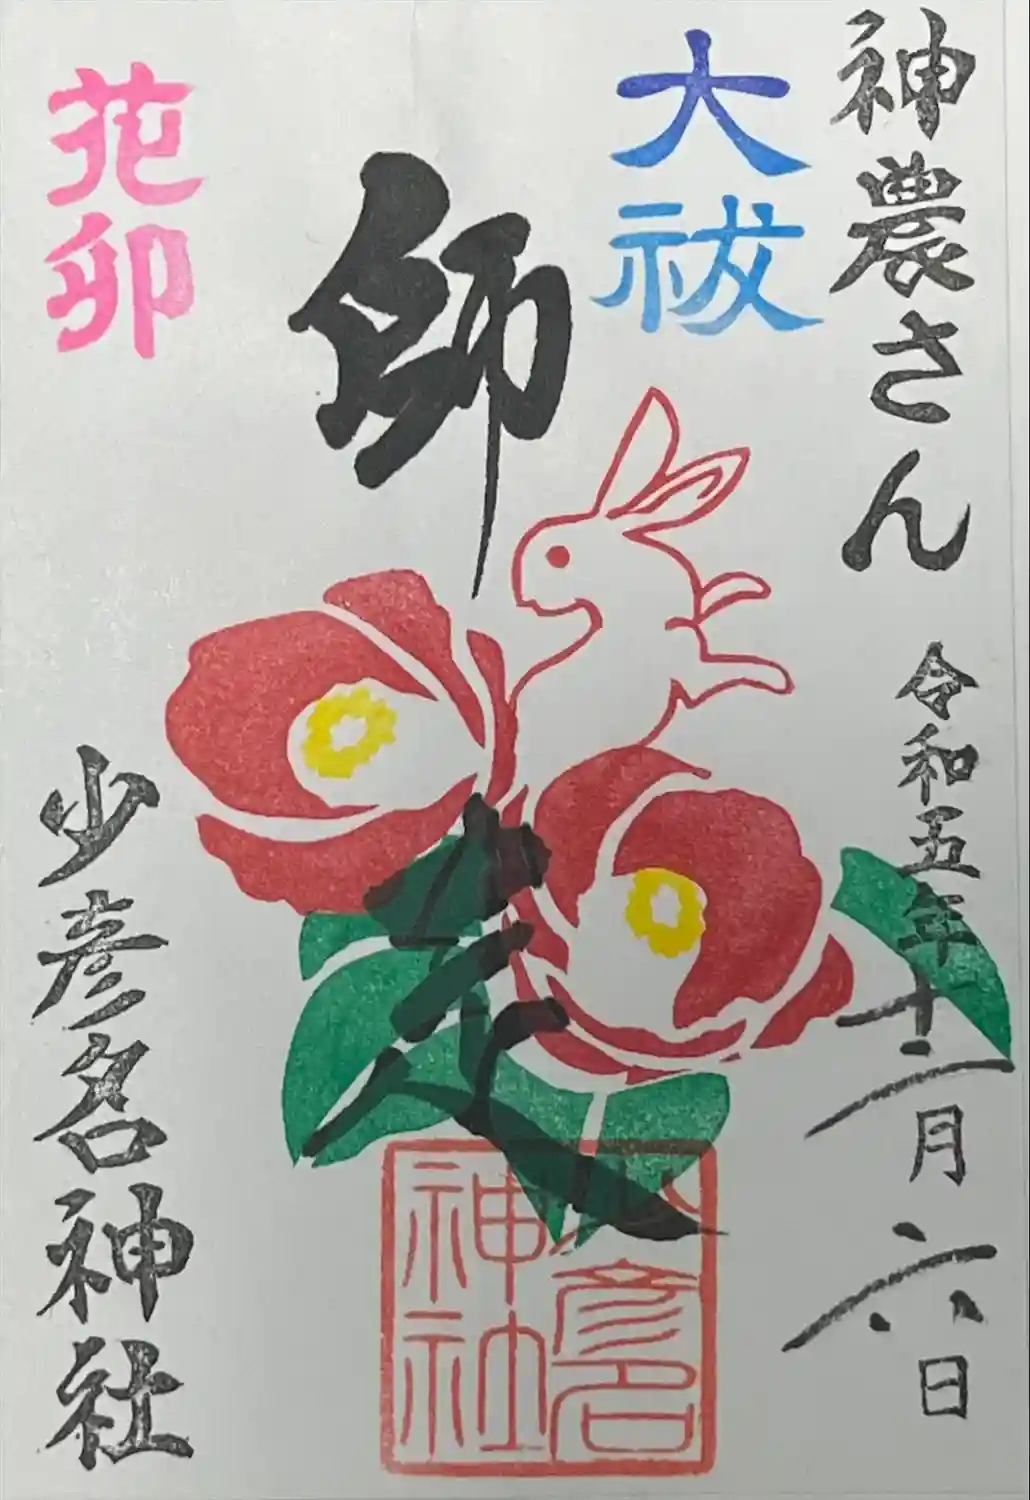 神農さん
令和五年十二月六日
大祓
師走
花卯
少彦名神社
少彦名神社